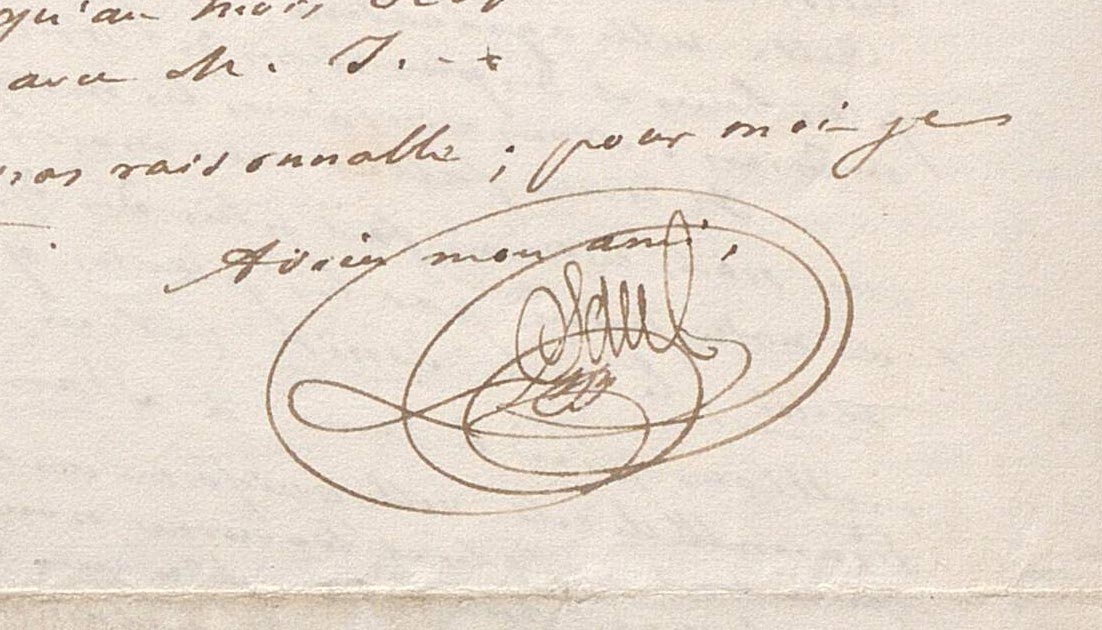 qu'au mois
avec M. J. -
pas raisonnable ; pour moi je
Adieu mon ami,